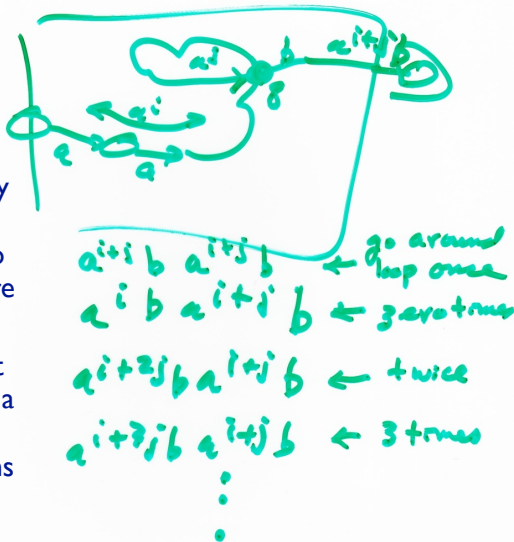 a^j b a^{i+j} b
q
a^i
a
a
a^{i+j} b a^{i+j} b ← go around loop once
a^i b a^{i+j} b ← zero times
a^{i+2j} b a^{i+j} b ← twice
a^{i+3j} b a^{i+j} b ← 3 times